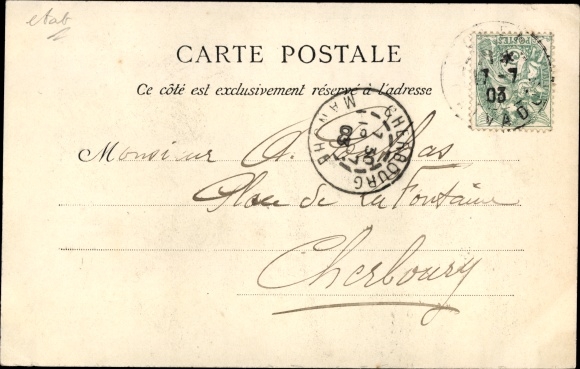 etab
CARTE POSTALE
Ce côté est exclusivement réservé à l'adresse
POSTES
7-7
03
VADOS
CHERBOURG
MANCHE
Monsieur A.
Place de la Fontaine
Cherbourg